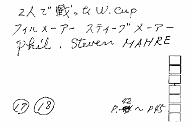 2人で戦ったW.Cup
フィルメーアー スティーブメーアー
Phil. Steven MAHRE
17 18 P.42~P45